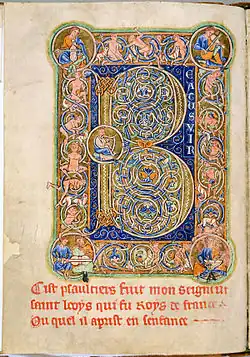 B
EATVS VIR
Cist psaultiers fuit mon seigneur
saint looys qui fu Roys de france
Ou quel il aprist en senfance